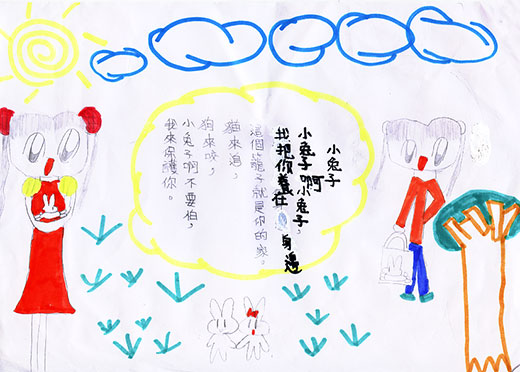 小兔子
小兔子啊小兔子，
我把你養在身邊
這個籠子就是你的家。
貓來追，
狗來咬，
小兔子啊不要怕，
我來保護你。